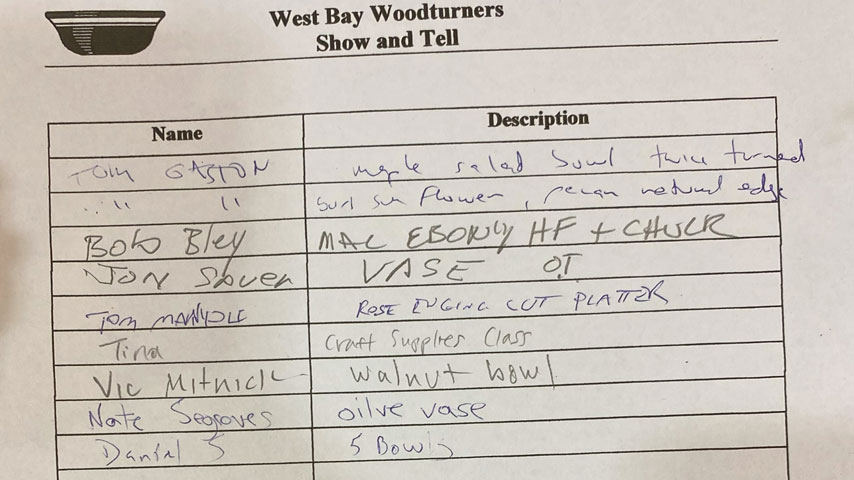 West Bay Woodturners
Show and Tell
Name Description
TOM GASTON maple salad bowl twice turned
" " burl sun flower, pecan natural edge
Bob Bley MAC EBONY HF + CHUCK
JON VASE OT
TOM ROSE ENGINE CUT PLATTER
Tina Craft Supplies Class
Vic Mitnick walnut bowl
Nate Segroves oilve vase
Daniel S 5 Bowls